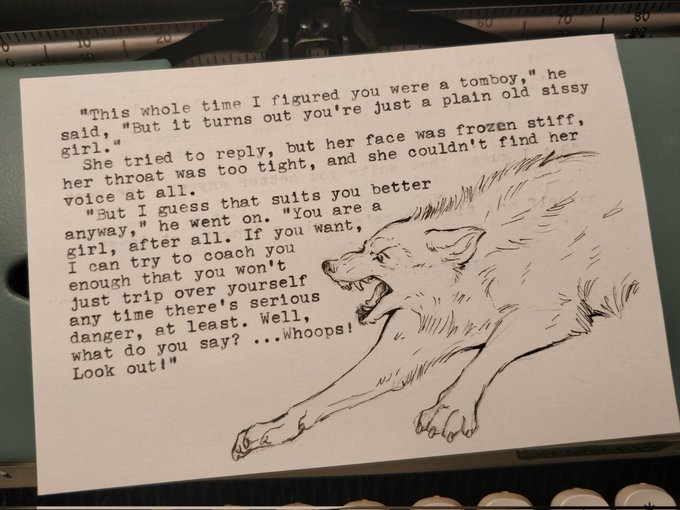 10 20 60 70 80
"This whole time I figured you were a tomboy," he
said, "But it turns out you're just a plain old sissy
girl."
She tried to reply, but her face was frozen stiff,
her throat was too tight, and she couldn't find her
voice at all.
"But I guess that suits you better
anyway," he went on. "You are a
girl, after all. If you want,
I can try to coach you
enough that you won't
just trip over yourself
any time there's serious
danger, at least. Well,
what do you say? ...Whoops!
Look out!"